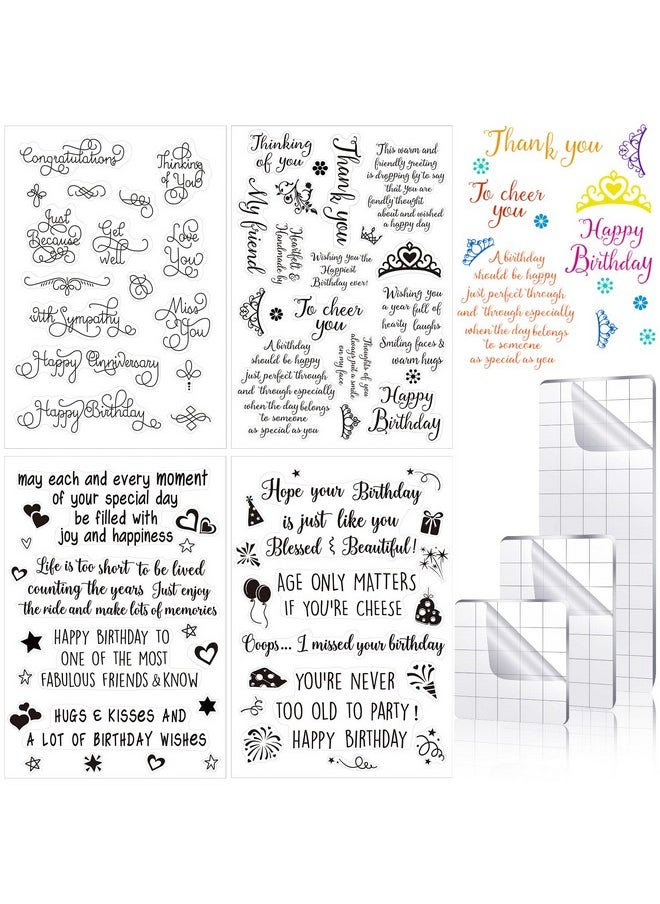 Congratulations
Thinking
of You
Just
Because
Get
well
Love
You
with Sympathy
Miss
You
Happy Anniversary
Happy Birthday
Thinking
of you
Thank you
This warm and
friendly greeting
is dropping by to say
that you are
fondly thought
about and wished
a happy day
My friend
Heartfelt &
Handmade by
Wishing you the
Happiest
Birthday ever!
To cheer
you
Wishing you
a year full of
hearty laughs
Smiling faces &
warm hugs
A birthday
should be happy
just perfect through
and through especially
when the day belongs
to someone
as special as you
Thoughts of you
always put a smile
on my face
Happy
Birthday
Thank you
To cheer
you
Happy
Birthday
A birthday
should be happy
just perfect through
and through especially
when the day belongs
to someone
as special as you
may each and every moment
of your special day
be filled with
joy and happiness
Life is too short to be lived
counting the years Just enjoy
the ride and make lots of memories
HAPPY BIRTHDAY TO
ONE OF THE MOST
FABULOUS FRIENDS & KNOW
HUGS & KISSES AND
A LOT OF BIRTHDAY WISHES
Hope your Birthday
is just like you
Blessed & Beautiful!
AGE ONLY MATTERS
IF YOU'RE CHEESE
Ooops... I missed your birthday
YOU'RE NEVER
TOO OLD TO PARTY!
HAPPY BIRTHDAY